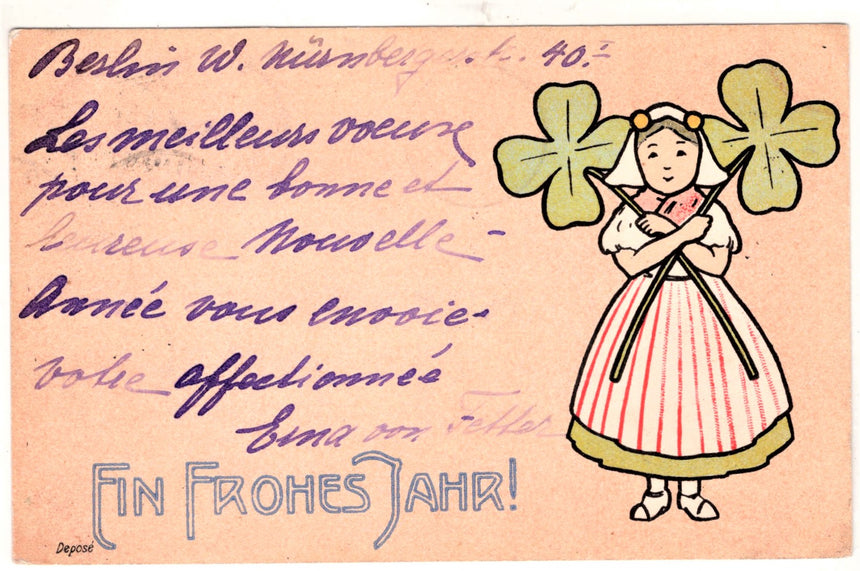 Berlin W. Nürnbergerstr. 40.I
Les meilleurs voeux
pour une bonne et
heureuse Nouvelle-
Année vous envoie-
votre affectionnée
Erna von
EIN FROHES JAHR!
Deposé